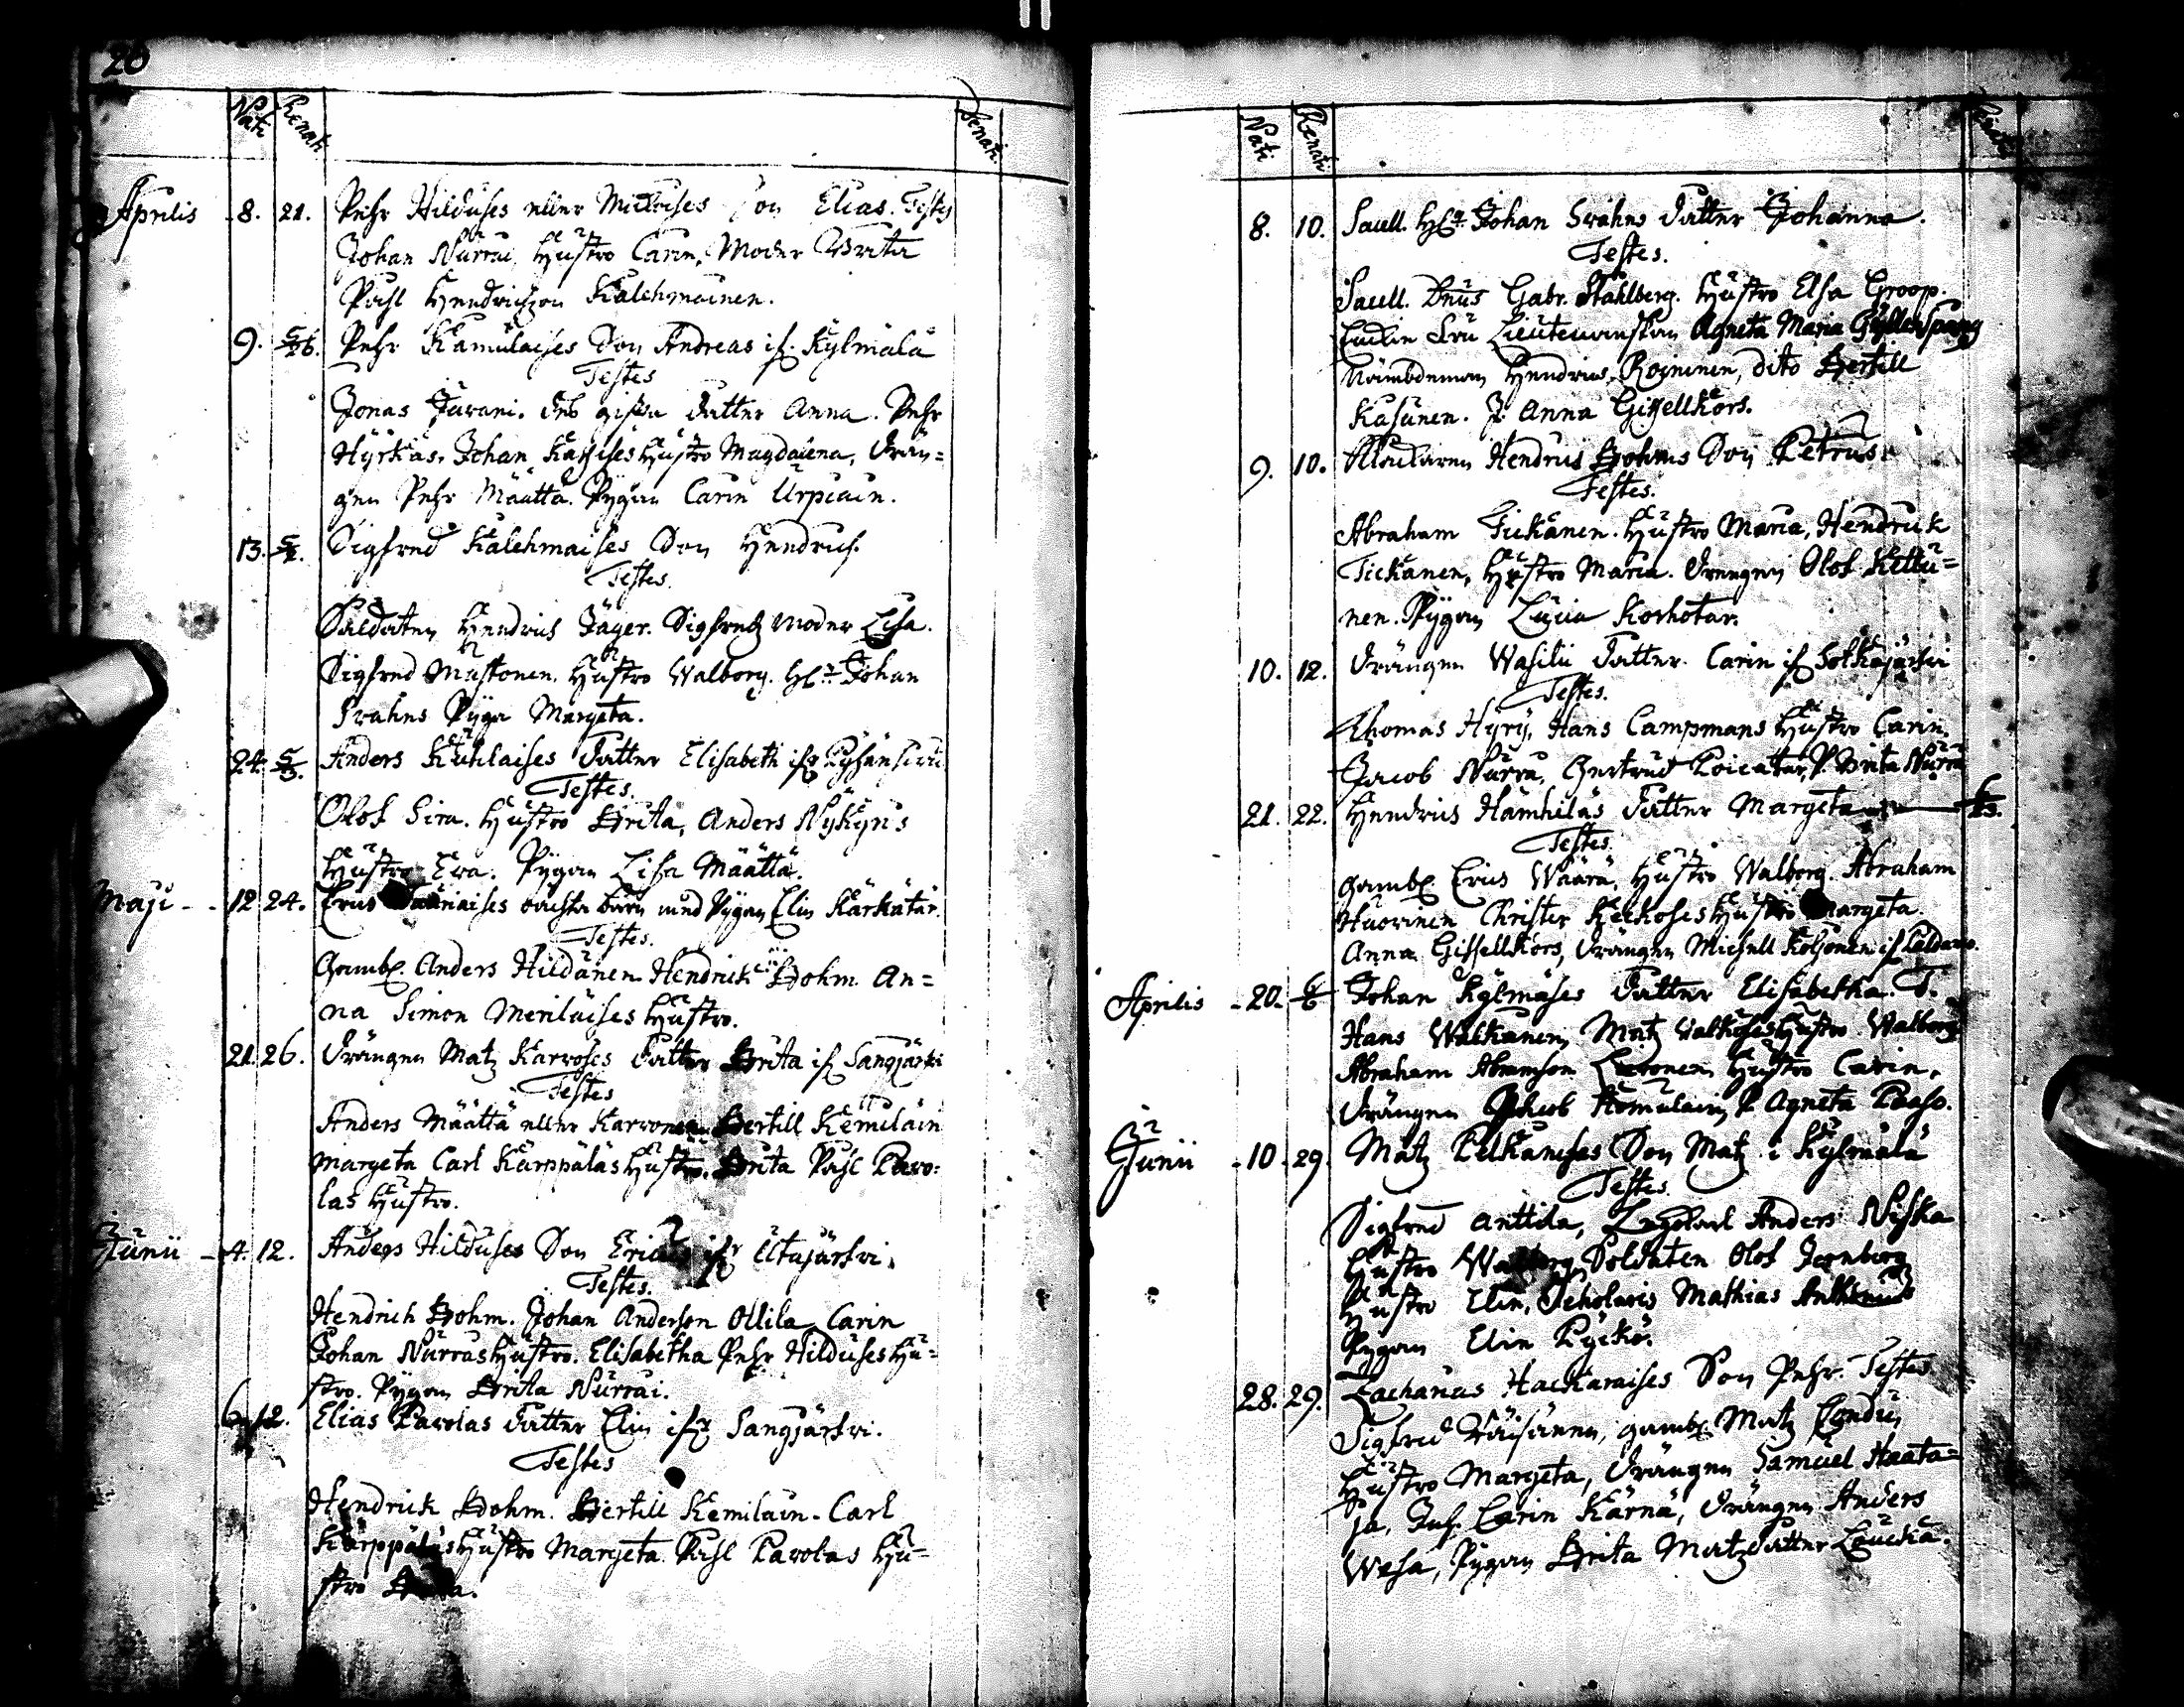 20
Nati Renati Denati
Aprilis 8. 21. Pehr Hilduses eller Mickoises Son Elias. Testes
Johan Nurrai, Hustro Carin, Moder Brita
Påhl Hendrichson Kalehmainen.
9. 5/26. Pehr Kamulaises Son Andreas if. Kylmälä
Testes
Jonas Juvani. deß gifta datter Anna. Pehr
Hyrkäs. Johan Kargises Hustro Magdalena, drän=
gen Pehr Määttä. Pygan Carin Urpiain.
13. Sigfred Kalehmaises Son Hendric.
Testes.
Saldaten Hendric Jäger. Sigfredz moder Lisa.
Sigfred Mustonen. Hustro Walborg. Johan
Frahns Pyga Margeta.
24. 5/3. Anders Kuhlaises datter Elisabeth
Testes.
Olof Sira. Hustro Brita, Anders Nykyris
Hustro Ewa. Pygan Lisa Määttä.
Maji - - 12 24. Eric oächta barn med Pygan Elin Kärkätär.
Testes.
Gamble Anders Hildunen. Hendrick Bohm. An=
na Simon Meriläises Hustro.
21. 26. Drängen Matz Karvoses datter Brita if Sangjärfvi
Testes
Anders Määttä eller Karvonen Bertill Kemiläin
Margeta Carl Kärppäläs Hustro. Brita Påhl Pavo=
las Hustro.
Junii - 4. 12. Anders Hilduses Son Eric ifr Utajärfvi.
Testes.
Hendrich Bohm. Johan Anderson Ollila, Carin
Johan Nurras Hustro. Elisabetha Pehr Hilduses Hu=
stro. Pygan Brita Nurrai.
6. 12. Elias Pavolas datter Elin ifr Sangjärfvi.
Testes
Hendrick Bohm. Bertill Kemiläin. Carl
Kärppäläs Hustro Margeta Påhl Pavolas Hu=
stro
Nati Renati
8. 10. Sacell. Johan Frahns datter Johanna.
Testes.
Sacell. Dnus Gabr. Stahlberg. Hustro Elsa Groop.
Fru Lieutenanskan Agneta Maria Gyllenspang
Nämbdeman Hendric Roininen, dito Bertill
Kasunen. J. Anna Gissellkors.
9. 10. Hendric Bohms Son Petrus
Testes.
Abraham Tickanen. Hustro Maria, Hendrick
Tickanen, Hustro Maria. Drengen Olof Kettu=
nen. Pygan Lucia Korhotar.
10. 12. Drängen Wasilii datter Carin if Sotkajärfvi
Testes.
Thomas Hyry, Hans Campmans Hustro Carin,
Jacob Nurra, Gertrud P. Brita Nurra
21. 22. Hendrics Hämhiläs datter Margeta 6/23.
Testes.
Gamble Eric Wäärä, Hustro Walborg. Abraham
Huovinen Christer Keckoses Hustro Margeta.
Anna Gissellkors, Drängen Michell Koljonen if Paldamo.
Aprilis - 20. Johan Kylmäses datter Elisabetha. T.
Hans Walkanen, Matz Walkeses Hustro Walborg
Abraham Abramson Hustro Carin.
Drängen Jacob Komulain, P. Agneta Paaso.
Junii - 10 - 29. Matz Pelkaneses Son Matz i Kylmälä
Testes.
Sigfred Anttila, Anders Niska
Hustro Walborg, Soldaten Olof Jernberg
Hustro Elin, Scholaris Mathias
Pygan Elin Pyckö.
28. 29. Zacharias Hackaraises Son Pehr. Testes
Sigfred Räisänen, gamble Matz
Hustro Margeta, Drängen Samuel Haata=
ja, Inh. Carin Kärnä, Drängen Anders
Wesa, Pygan Brita Matzdatter Leuckä.